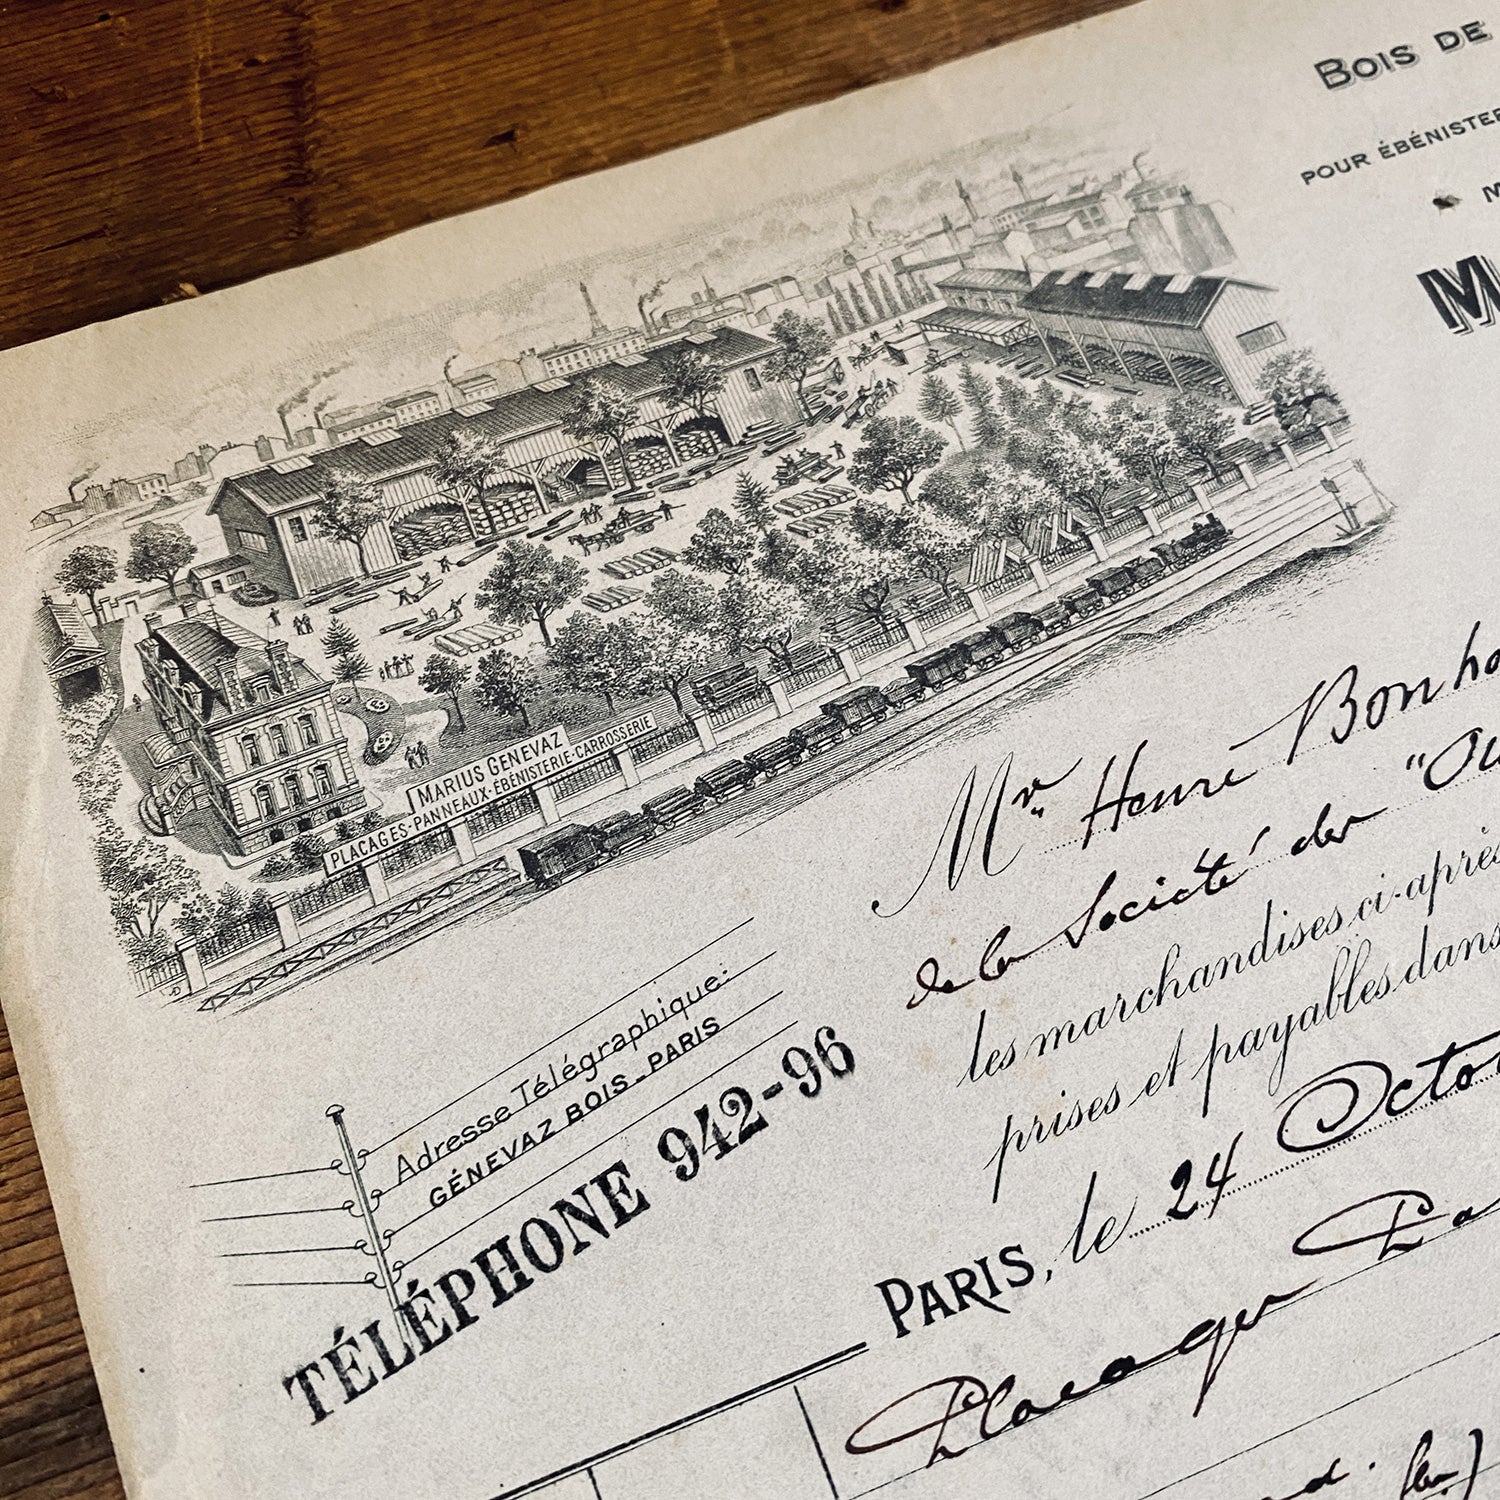 BOIS DE
POUR ÉBÉNISTER
M
M
MARIUS GENEVAZ
PLACAGES·PANNEAUX·ÉBÉNISTERIE·CARROSSERIE
Mr Henri Bonho
de la Société des "Ou
les marchandises ci-après
prises et payables dans
Adresse Télégraphique:
GÉNEVAZ BOIS-PARIS
TÉLÉPHONE 942-96
PARIS, le 24 Octo
Placage